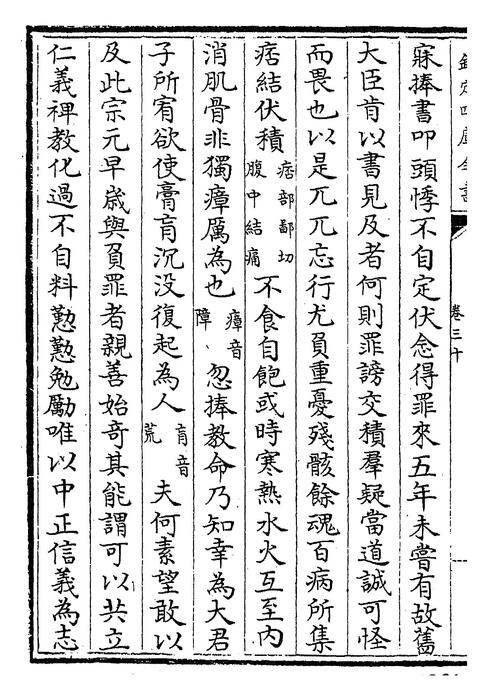 欽定四庫全書
卷三十
寐捧書叩頭悸不自定伏念得罪來五年未嘗有故舊
大臣肯以書見及者何則罪謗交積羣疑當道誠可怪
而畏也以是兀兀忘行尤負重憂殘骸餘魂百病所集
痞結伏積痞部鄙切腹中結痛不食自飽或時寒熱水火互至内
消肌骨非獨瘴厲為也瘴音障忽捧教命乃知幸為大君
子所宥欲使膏肓沉没復起為人肓音荒夫何素望敢以
及此宗元早歲與負罪者親善始奇其能謂可以共立
仁義裨教化過不自料懃懃勉勵唯以中正信義為志